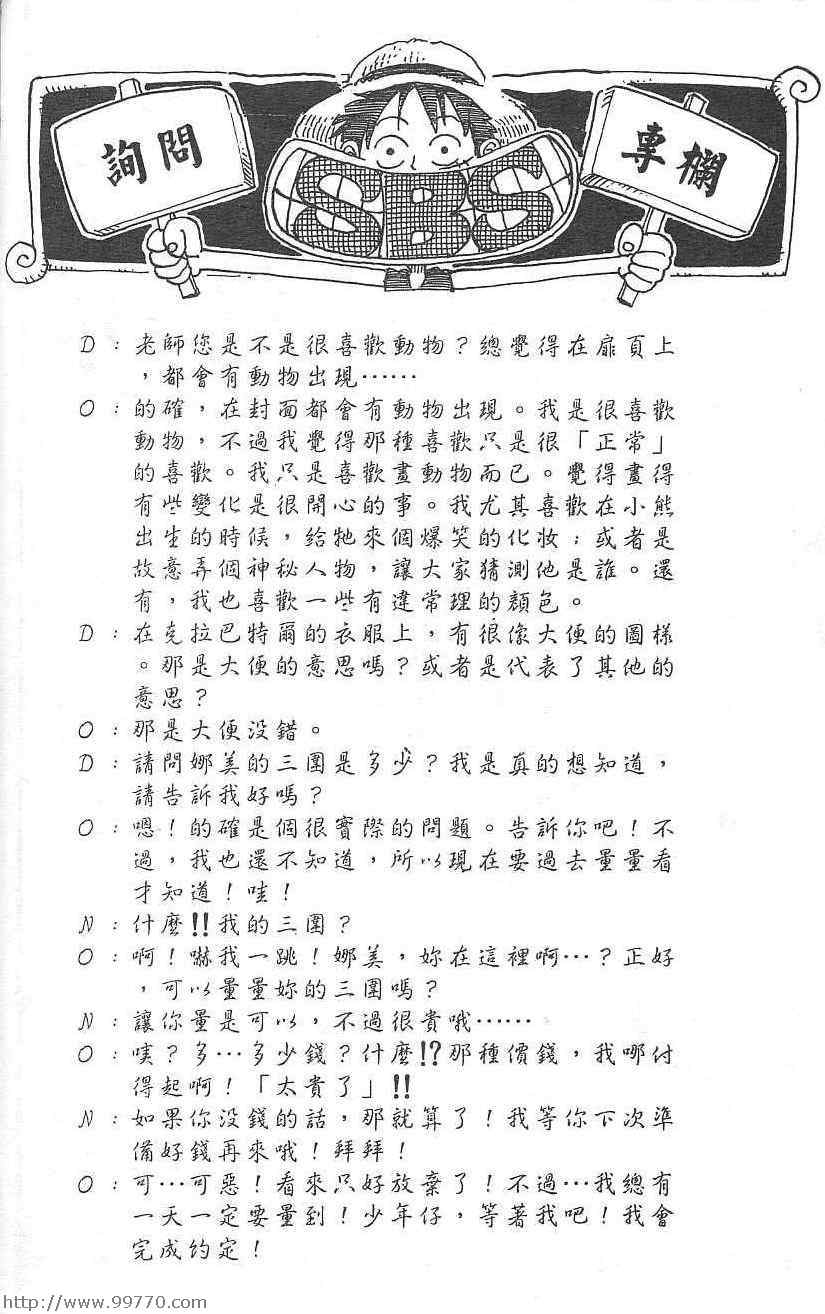 詢問
SBS
專欄
D：老師您是不是很喜歡動物？總覺得在扉頁上
，都會有動物出現……
O：的確，在封面都會有動物出現。我是很喜歡
動物，不過我覺得那種喜歡只是很「正常」
的喜歡。我只是喜歡畫動物而已。覺得畫得
有些變化是很開心的事。我尤其喜歡在小熊
出生的時候，給牠來個爆笑的化妝；或者是
故意弄個神秘人物，讓大家猜測他是誰。還
有，我也喜歡一些有違常理的顏色。
D：在克拉巴特爾的衣服上，有很像大便的圖樣
。那是大便的意思嗎？或者是代表了其他的
意思？
O：那是大便沒錯。
D：請問娜美的三圍是多少？我是真的想知道，
請告訴我好嗎？
O：嗯！的確是個很實際的問題。告訴你吧！不
過，我也還不知道，所以現在要過去量量看
才知道！哇！
N：什麼!!我的三圍？
O：啊！嚇我一跳！娜美，妳在這裡啊…？正好
，可以量量妳的三圍嗎？
N：讓你量是可以，不過很貴哦……
O：噗？多…多少錢？什麼!?那種價錢，我哪付
得起啊！「太貴了」!!
N：如果你沒錢的話，那就算了！我等你下次準
備好錢再來哦！拜拜！
O：可…可惡！看來只好放棄了！不過…我總有
一天一定要量到！少年仔，等著我吧！我會
完成約定！
http://www.99770.com